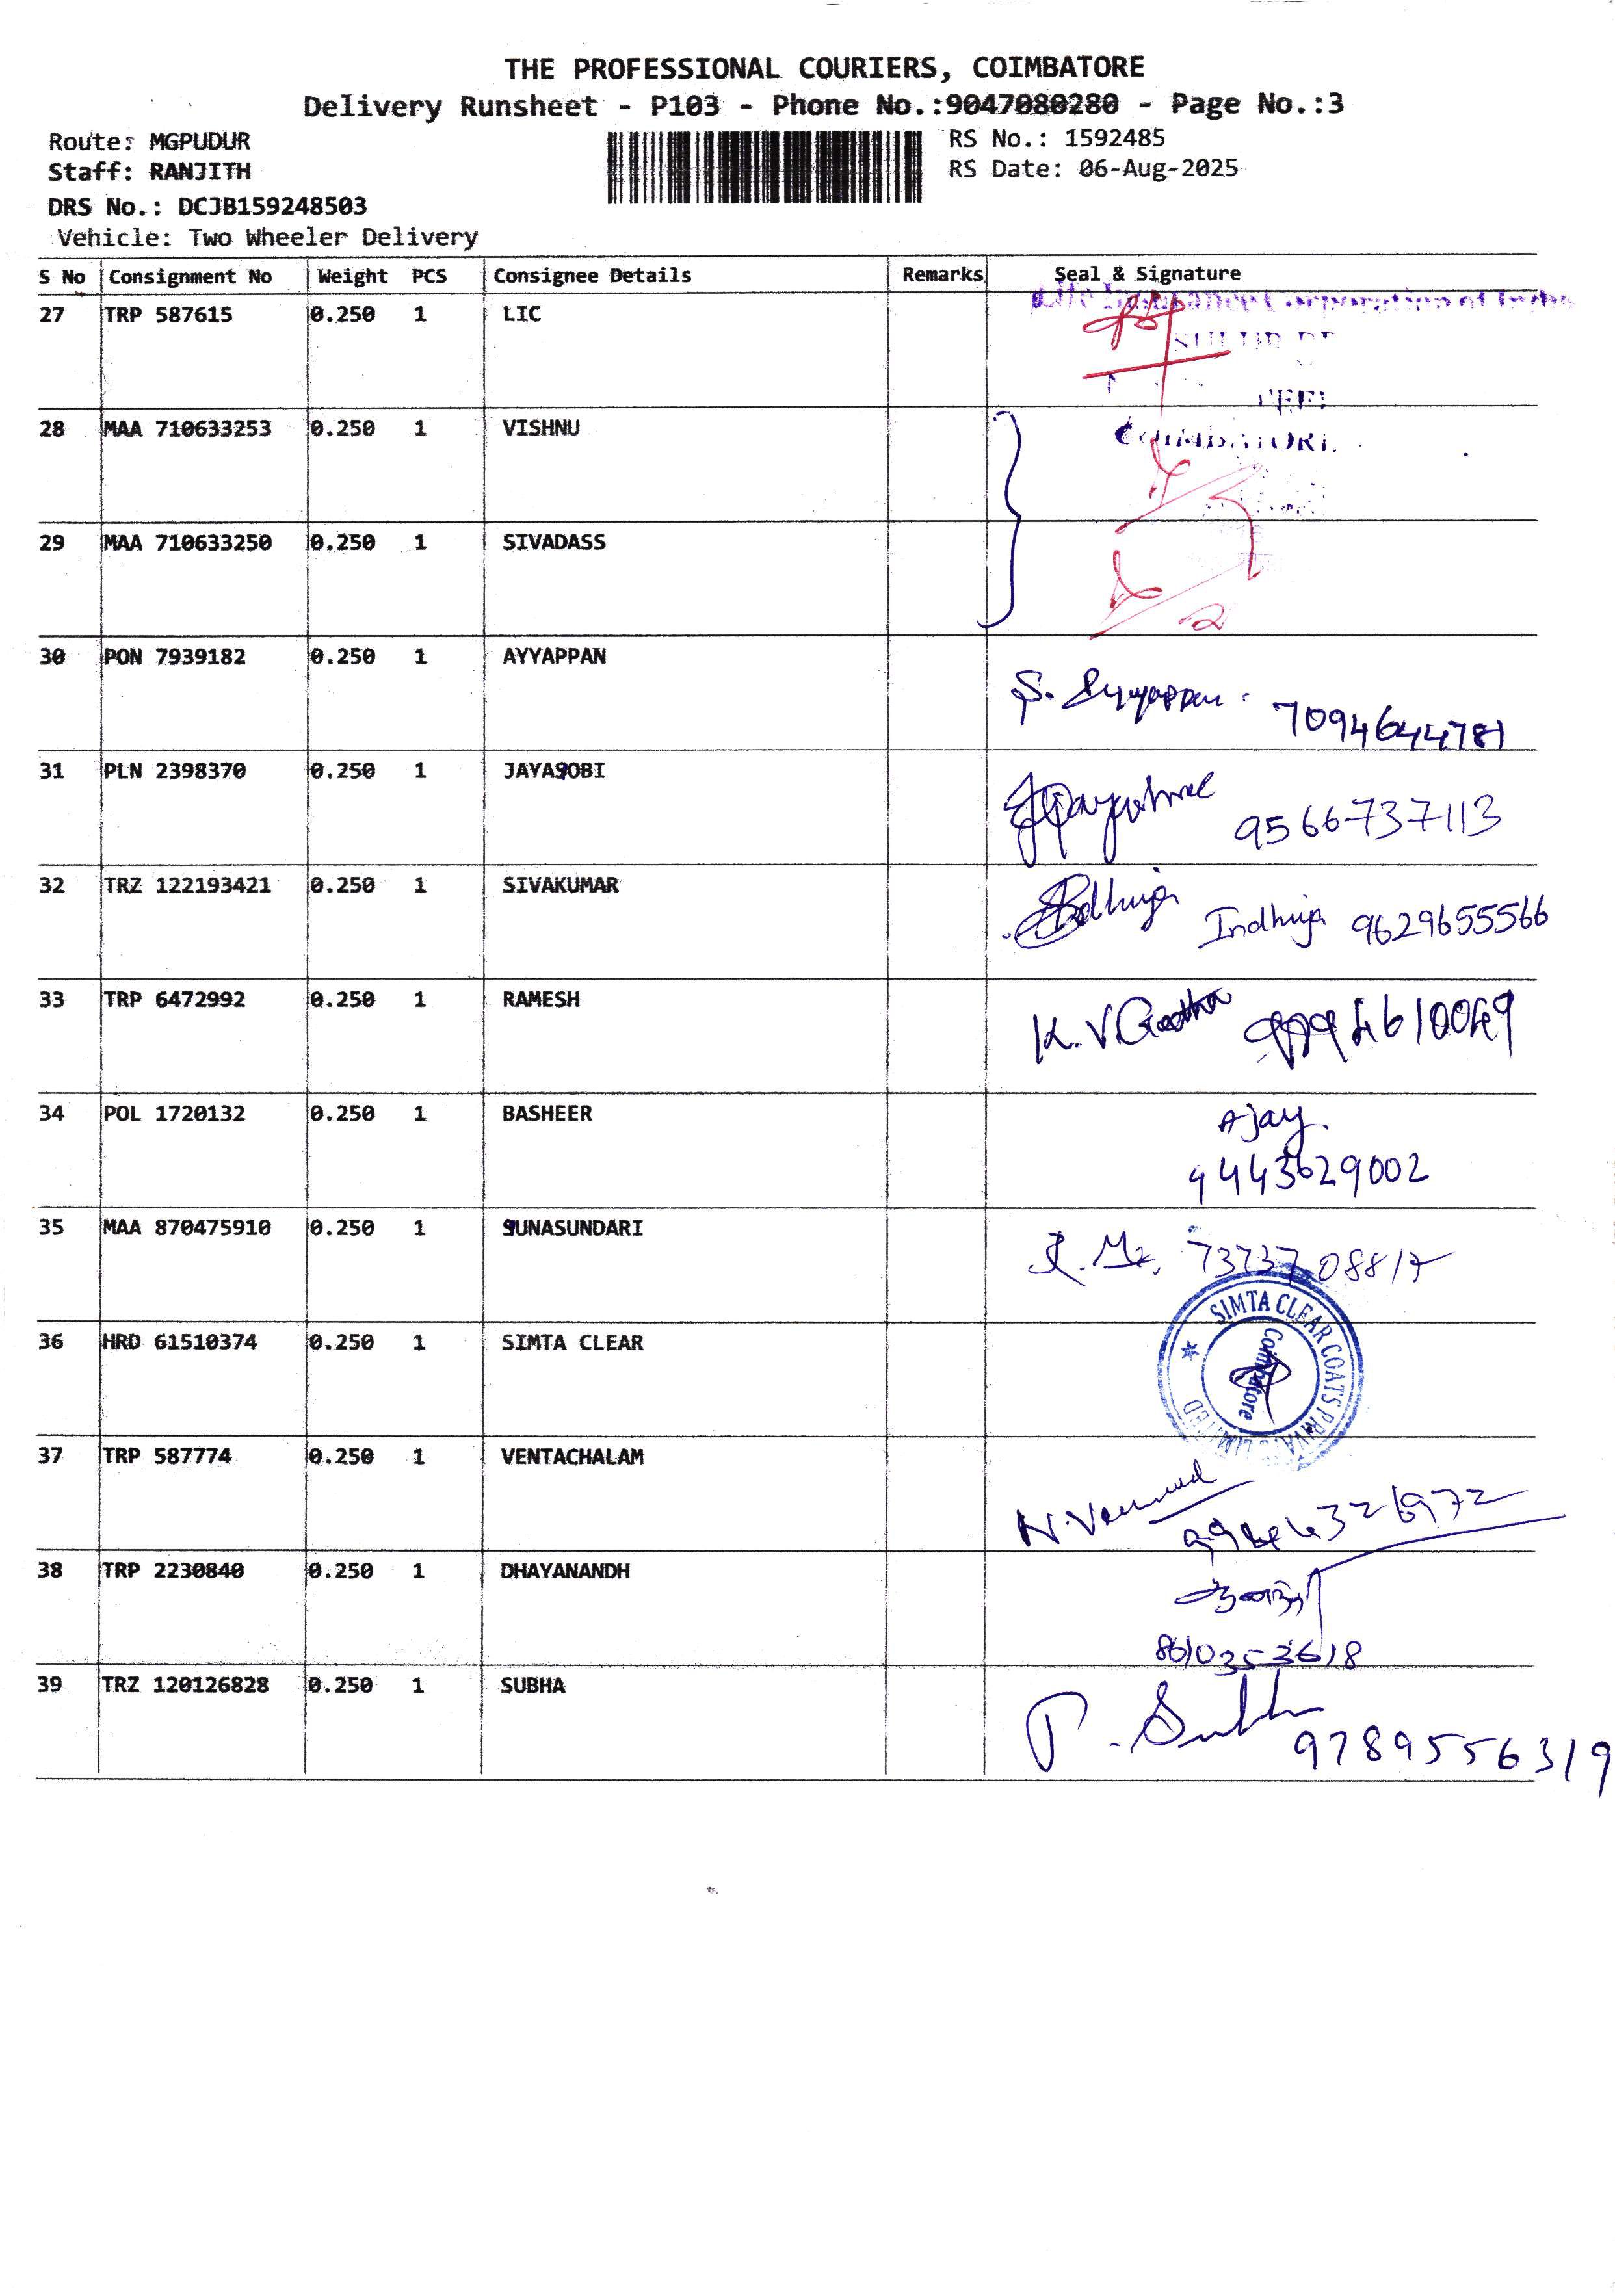 THE PROFESSIONAL COURIERS, COIMBATORE
Delivery Runsheet - P103 - Phone No.:9047080280 - Page No.:3
Route: MGPUDUR
RS No.: 1592485
Staff: RANJITH
RS Date: 06-Aug-2025
DRS No.: DCJB159248503
Vehicle: Two Wheeler Delivery
S No Consignment No Weight PCS Consignee Details Remarks Seal & Signature
27 TRP 587615 0.250 1 LIC
Life Insurance Corporation of India
28 MAA 710633253 0.250 1 VISHNU
COIMBATORE
29 MAA 710633250 0.250 1 SIVADASS
30 PON 7939182 0.250 1 AYYAPPAN
S. Ayyappan 7094644781
31 PLN 2398370 0.250 1 JAYASOBI
9566737113
32 TRZ 122193421 0.250 1 SIVAKUMAR
Indhuja 9629655566
33 TRP 6472992 0.250 1 RAMESH
K.V Geetha
34 POL 1720132 0.250 1 BASHEER
Ajay
9443629002
35 MAA 870475910 0.250 1 SUNASUNDARI
7373708817
36 HRD 61510374 0.250 1 SIMTA CLEAR
SIMTA CLEAR COATS PRIVATE LIMITED
Coimbatore
37 TRP 587774 0.250 1 VENTACHALAM
38 TRP 2230840 0.250 1 DHAYANANDH
8610353618
39 TRZ 120126828 0.250 1 SUBHA
P. Subha 9789556319